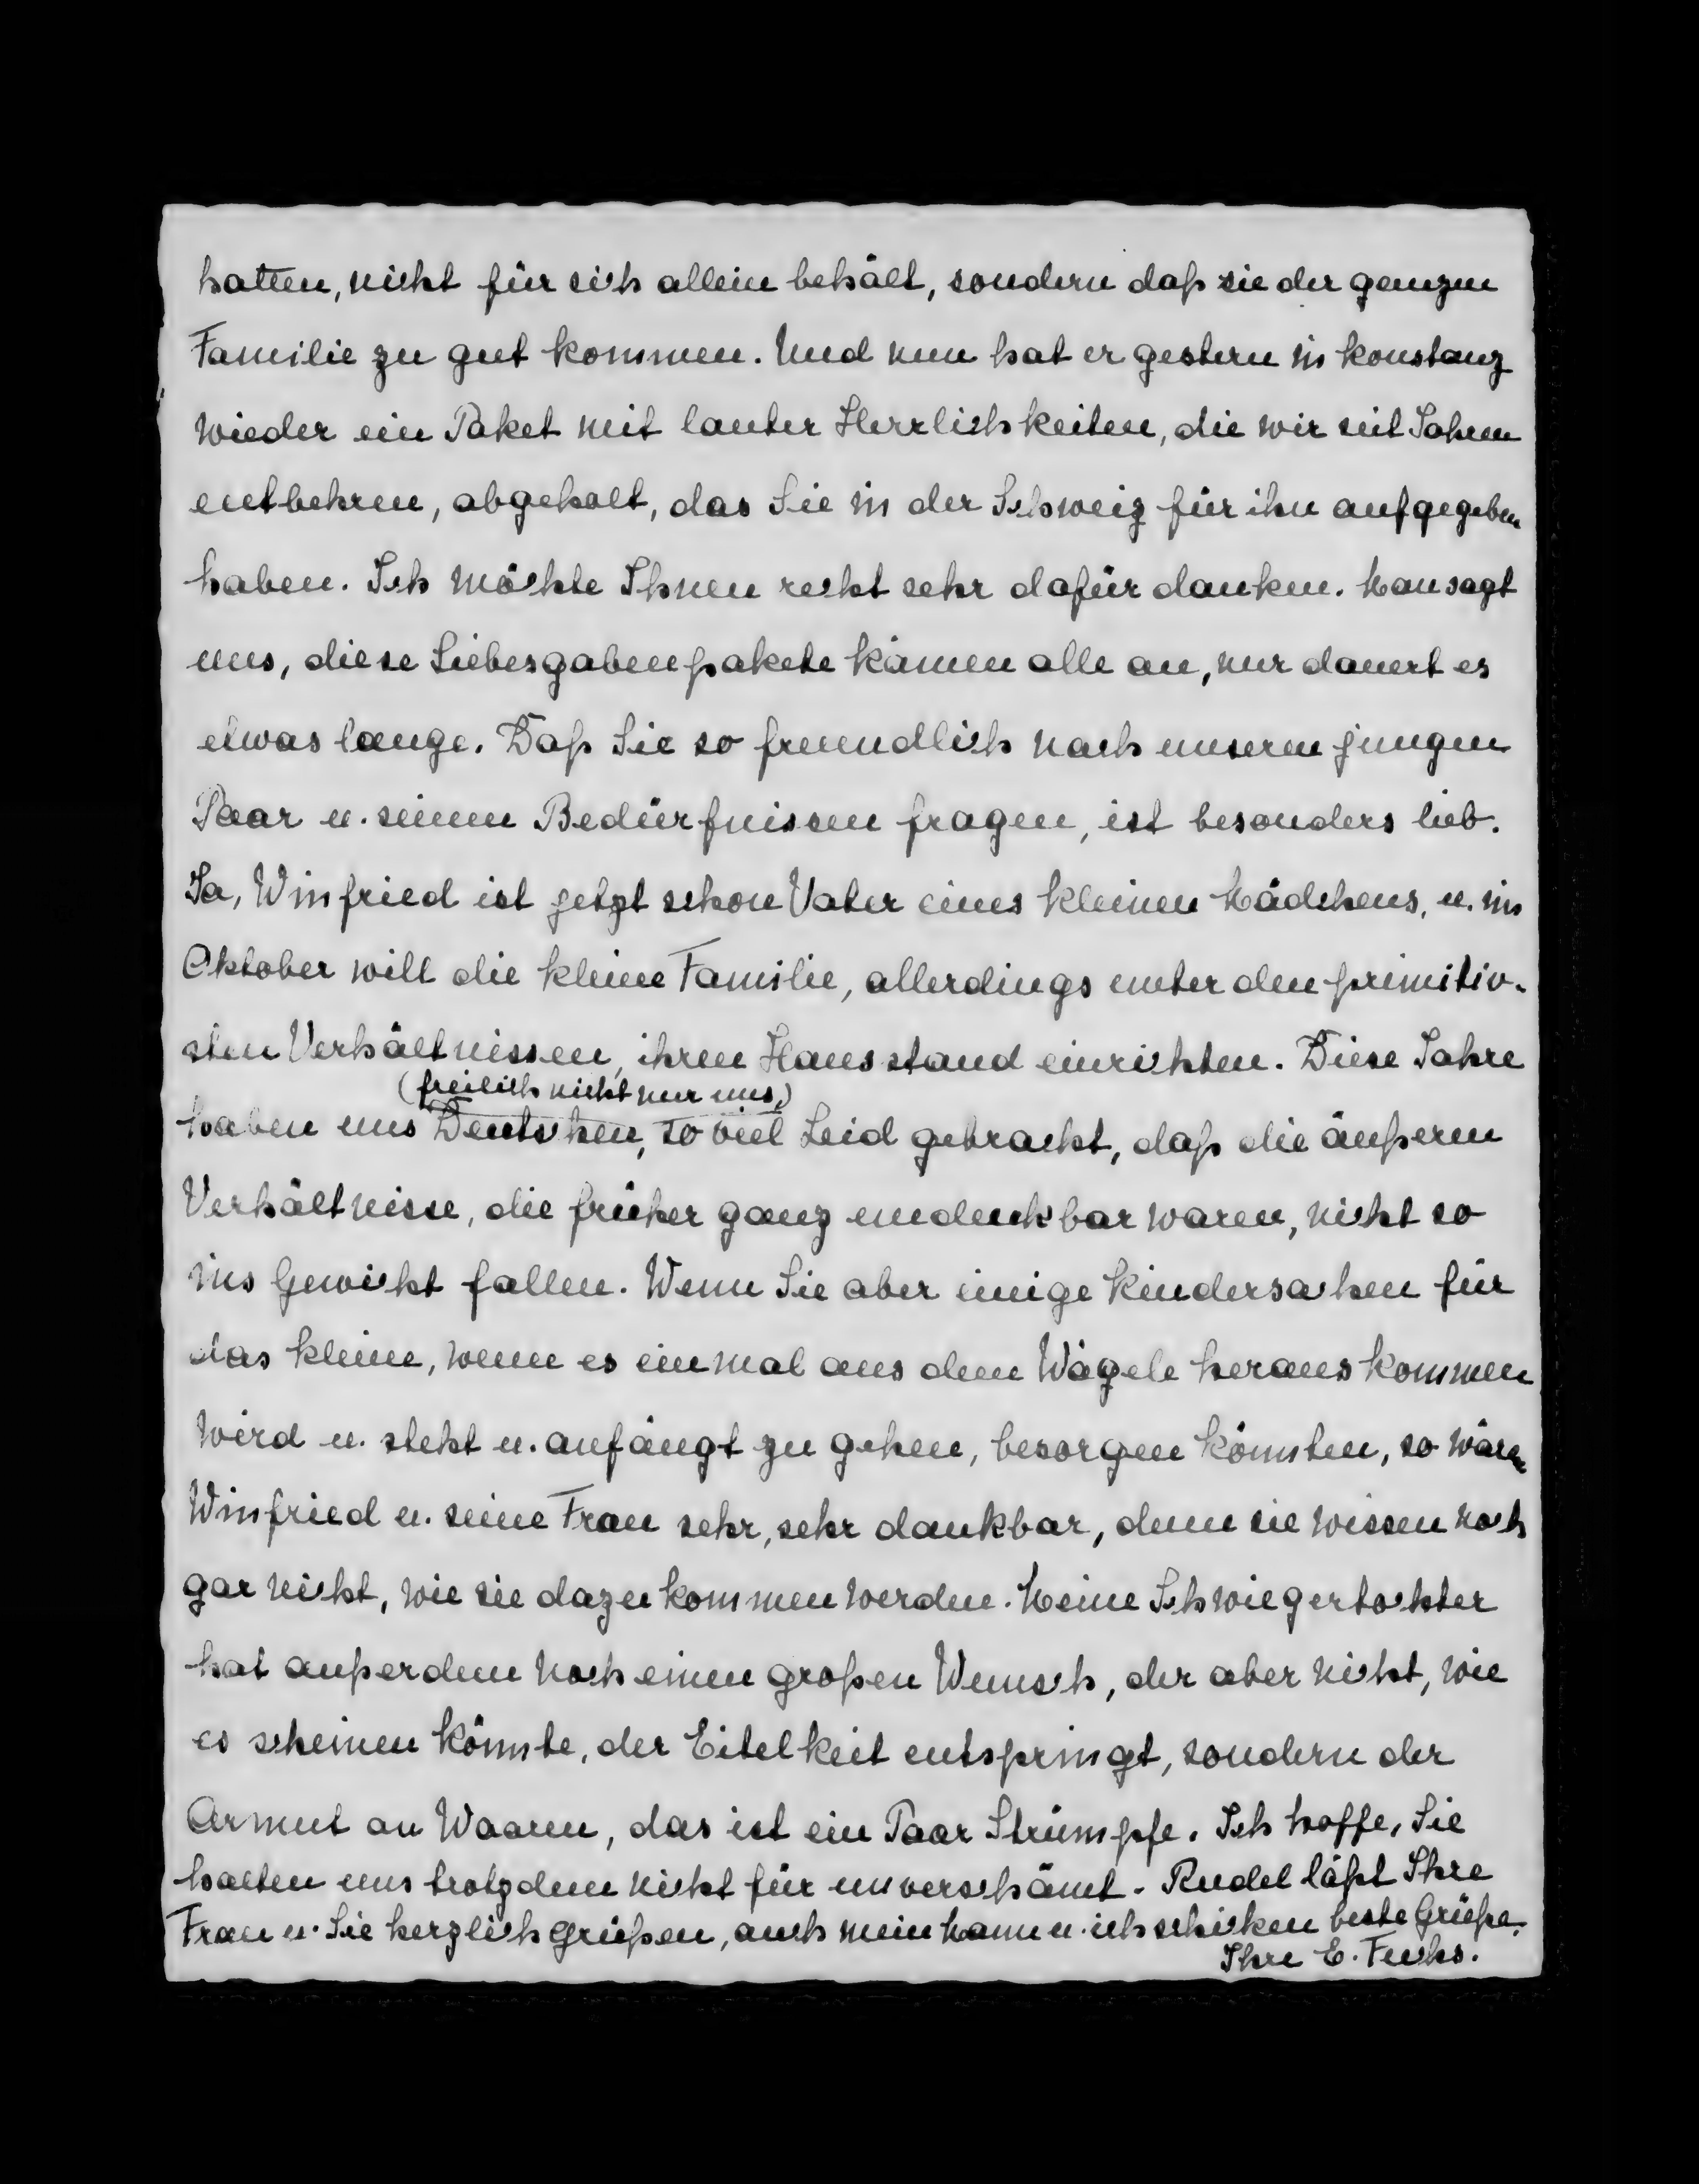 hatten, nicht für sich allein behält, sondern daß sie der ganzen
Familie zu gut kommen. Und nun hat er gestern in Konstanz
wieder ein Paket mit lauter Herrlichkeiten, die wir seit Jahren
entbehren, abgeholt, das Sie in der Schweiz für ihn aufgegeben
haben. Ich möchte Ihnen recht sehr dafür danken. Man sagt
uns, diese Liebesgabenpakete kämen alle an, nur dauert es
etwas lange. Daß Sie so freundlich nach unserem jungen
Paar u. seinen Bedürfnissen fragen, ist besonders lieb.
Ja, Winfried ist jetzt schon Vater eines kleinen Mädchens, u. im
Oktober will die kleine Familie, allerdings unter den primitiv-
sten Verhältnissen, ihren Hausstand einrichten. Diese Jahre
(freilich nicht nur uns,)
haben uns Deutschen, so viel Leid gebracht, daß die äußeren
Verhältnisse, die früher ganz undenkbar waren, nicht so
ins Gewicht fallen. Wenn Sie aber einige Kindersachen für
das Kleine, wenn es einmal aus dem Wägele herauskommen
wird u. steht u. anfängt zu gehen, besorgen könnten, so wären
Winfried u. seine Frau sehr, sehr dankbar, denn sie wissen noch
gar nicht, wie sie dazu kommen werden. Meine Schwiegertochter
hat außerdem noch einen großen Wunsch, der aber nicht, wie
es scheinen könnte, der Eitelkeit entspringt, sondern der
Armut an Waaren, das ist ein Paar Strümpfe. Ich hoffe, Sie
halten uns trotzdem nicht für unverschämt. Rudel läßt Ihre
Frau u. Sie herzlich grüßen, auch mein Mann u. ich schicken beste Grüße.
Ihre E. Fuchs.